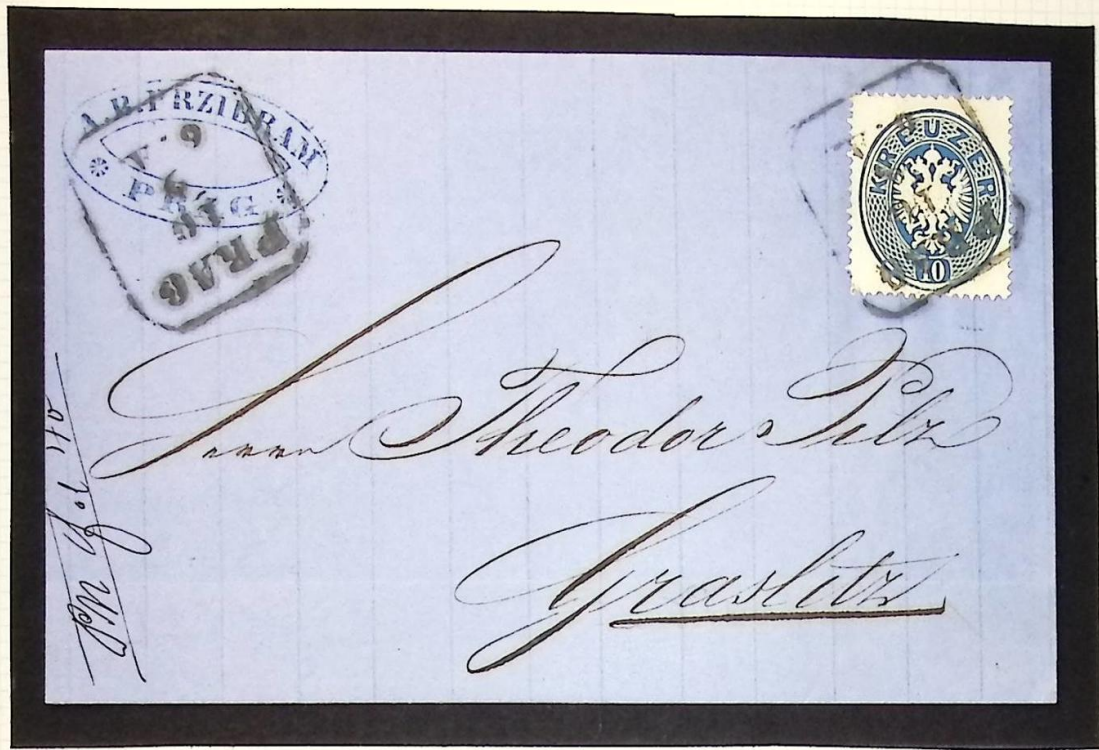 A.B. PRZIBRAM
PRAG
PRAG
KREUZER
10
Herrn Theodor Pilz
Graslitz